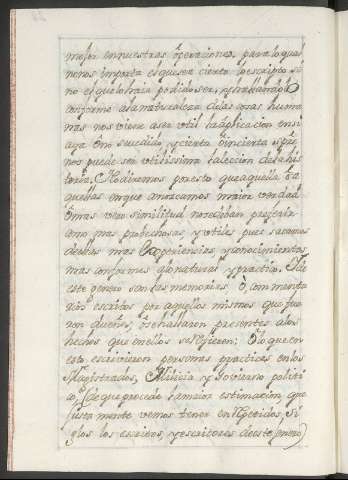 mejor en nuestras operaciones, para lo qual
no nos importa el que sea cierto lo escripto si
no el que lo haia podido ser, y hallandolo
conforme a la naturaleza de las cosas huma
nas nos viene a ser util la aplicacion en si
aya ô no sucedido, y cierta ô incierta siempre
nos puede ser utilissima la leccion de la his
toria. No diremos por esto que aquella, ô a
quellas en que arrecamos maior verdad
ô mas verosimilitud no se diban preferir
como mas probechosas y utiles pues sacamos
de ellas mas experiencias, y conocimientos
mas conformes a lo natural y practico. De
este genero son las memorias, ô, comenta
rios escritos por aquellos mismos que fue
ron dueños, ô se hallaron presentes a los
hechos que en ellos se refieren; ô lo que en
esto escrivieron personas practicas en los
Magistrados, Milicia y Govierno politi
co, de que procede la maior estimacion que
justamente vemos tener en repetidos si
glos los escritos, y escritores de este genero